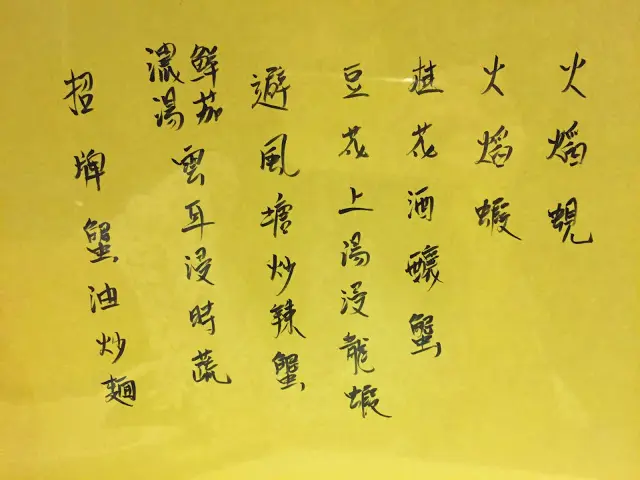 火焰蜆
火焰蝦
桂花酒釀蟹
豆花上湯浸龍蝦
避風塘炒辣蟹
鮮茄濃湯雲耳浸時蔬
招牌蟹油炒麵